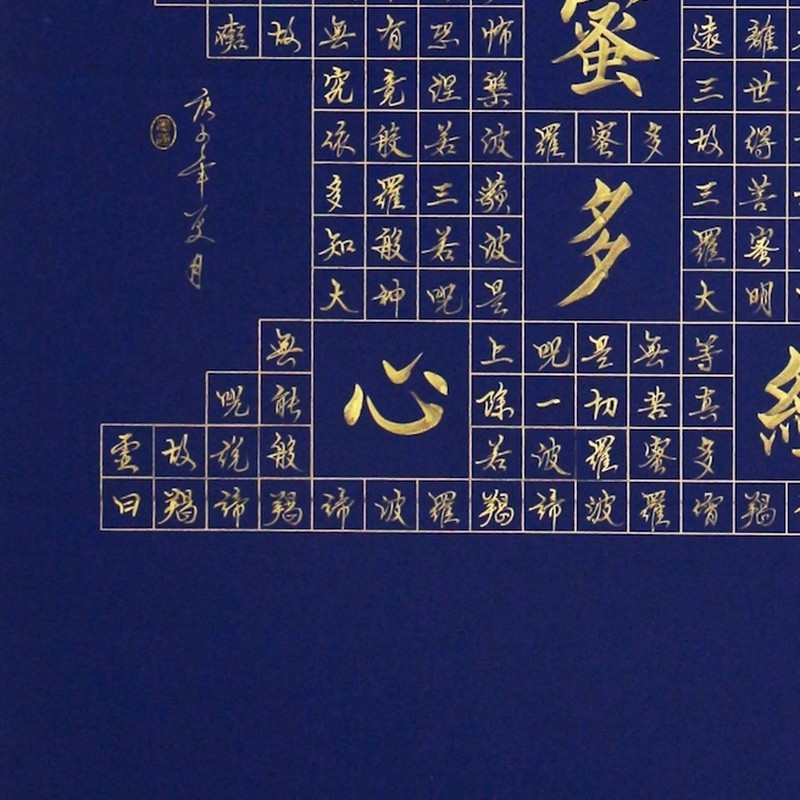 礙故無有恐怖遠離
究竟涅槃三世
依般若波羅蜜多故得
多羅三藐三菩
知般若波羅蜜
大神咒是大明
無上咒是無等
咒能除一切苦真
虛故說般若波羅蜜多
曰羯諦羯諦波羅羯諦波羅僧羯
蜜
多
心
庚子年夏月